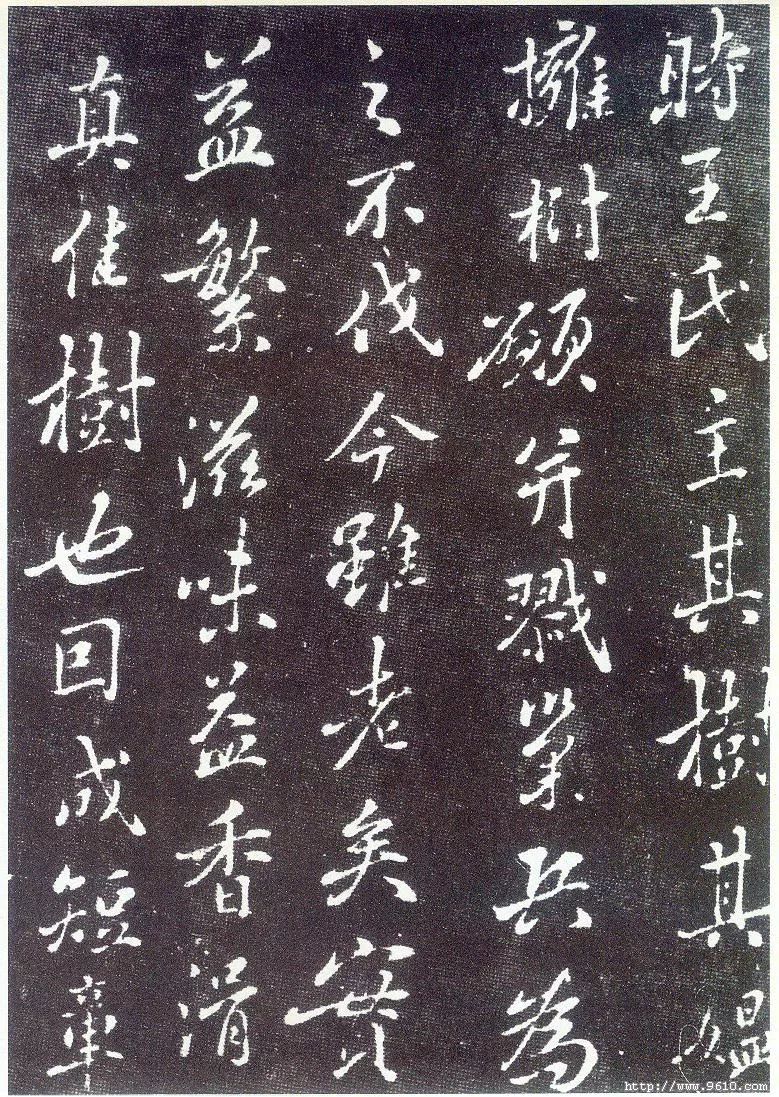 時王氏主其樹其媼
擁樹願并戮巢兵為
之不伐今雖老矣實
益繁滋味益香滑
真佳樹也因成短章
http://www.9610.com